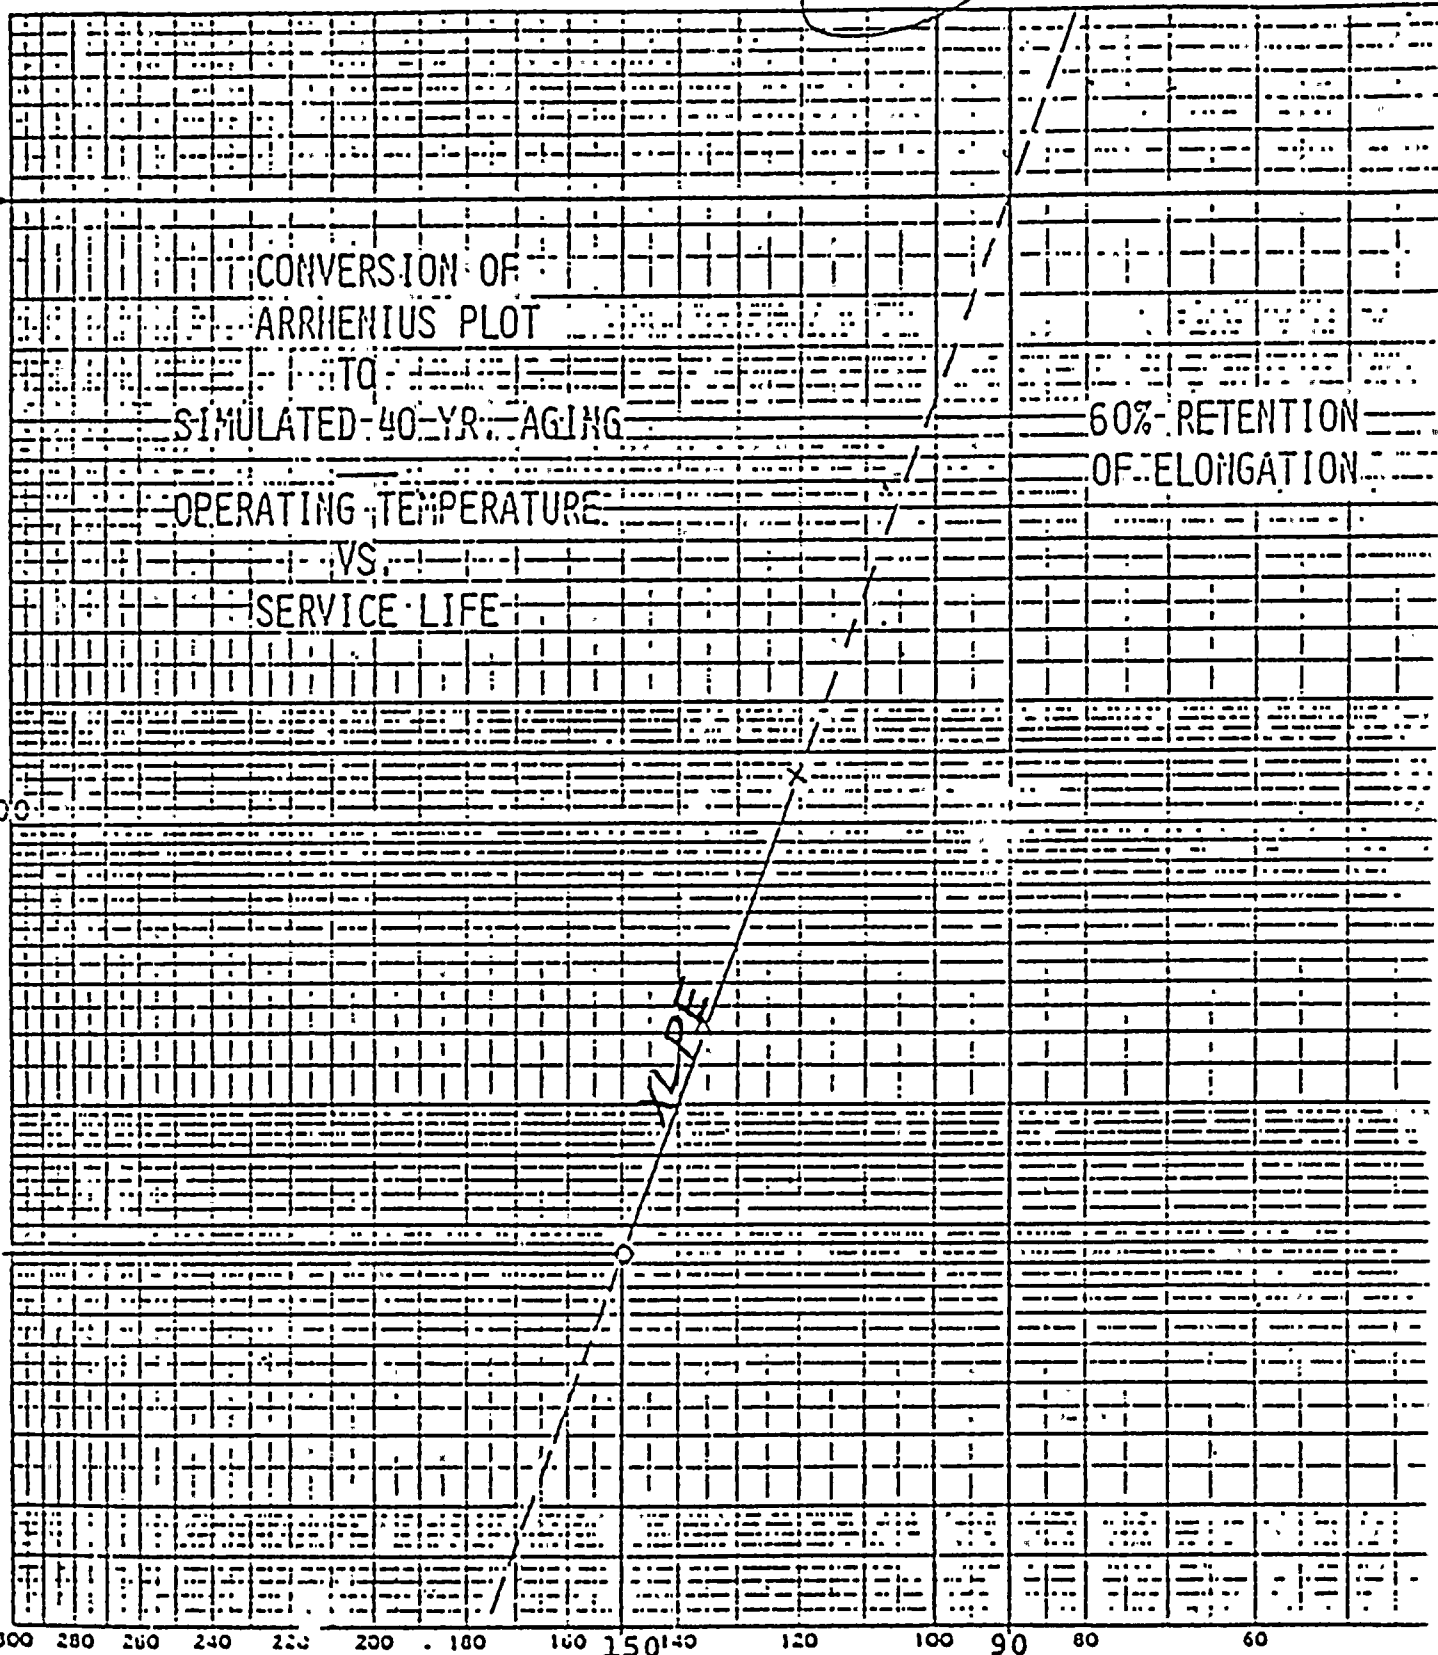 CONVERSION OF
ARRHENIUS PLOT
TO
SIMULATED 40 YR. AGING
OPERATING TEMPERATURE
VS.
SERVICE LIFE
60% RETENTION
OF ELONGATION
XLPE
300 280 260 240 200 180 160 150 140 120 100 90 80 60